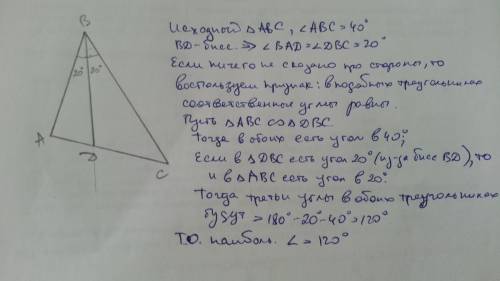 B
20° 20°
A
D
C
Исходный △ABC, ∠ABC = 40°
BD – бисс. ⇒ ∠BAD = ∠DBC = 20°
Если ничего не сказано про стороны, то
воспользуем признак: в подобных треугольниках
соответственные углы равны.
Пусть △ABC ∽ △DBC.
Тогда в обоих есть угол в 40°;
Если в △DBC есть угол 20° (из-за бисс BD), то
и в △ABC есть угол в 20°.
Тогда третьи углы в обоих треугольниках
будут = 180° - 20° - 40° = 120°
Т.О. наибол. ∠ = 120°